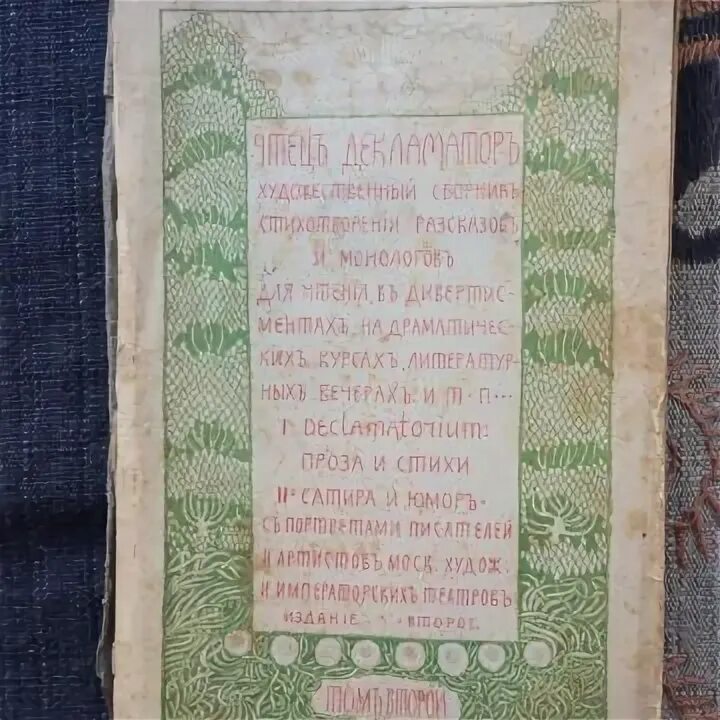 ЧТЕЦЪ ДЕКЛАМАТОРЪ
ХУДОЖЕСТВЕННЫЙ СБОРНИКЪ
СТИХОТВОРЕНІЙ РАЗСКАЗОВЪ
И МОНОЛОГОВЪ
ДЛЯ ЧТЕНІЯ, ВЪ ДИВЕРТИС-
МЕНТАХЪ, НА ДРАМАТИЧЕС-
КИХЪ КУРСАХЪ, ЛИТЕРАТУР-
НЫХЪ ВЕЧЕРАХЪ. И Т. П...
I DECLAMATORIUM:
ПРОЗА И СТИХИ
II САТИРА И ЮМОРЪ
СЪ ПОРТРЕТАМИ ПИСАТЕЛЕЙ
И АРТИСТОВЪ МОСК. ХУДОЖ.
И ИМПЕРАТОРСКИХЪ ТЕАТРОВЪ
ИЗДАНІЕ ВТОРОЕ
ТОМЪ ВТОРОЙ